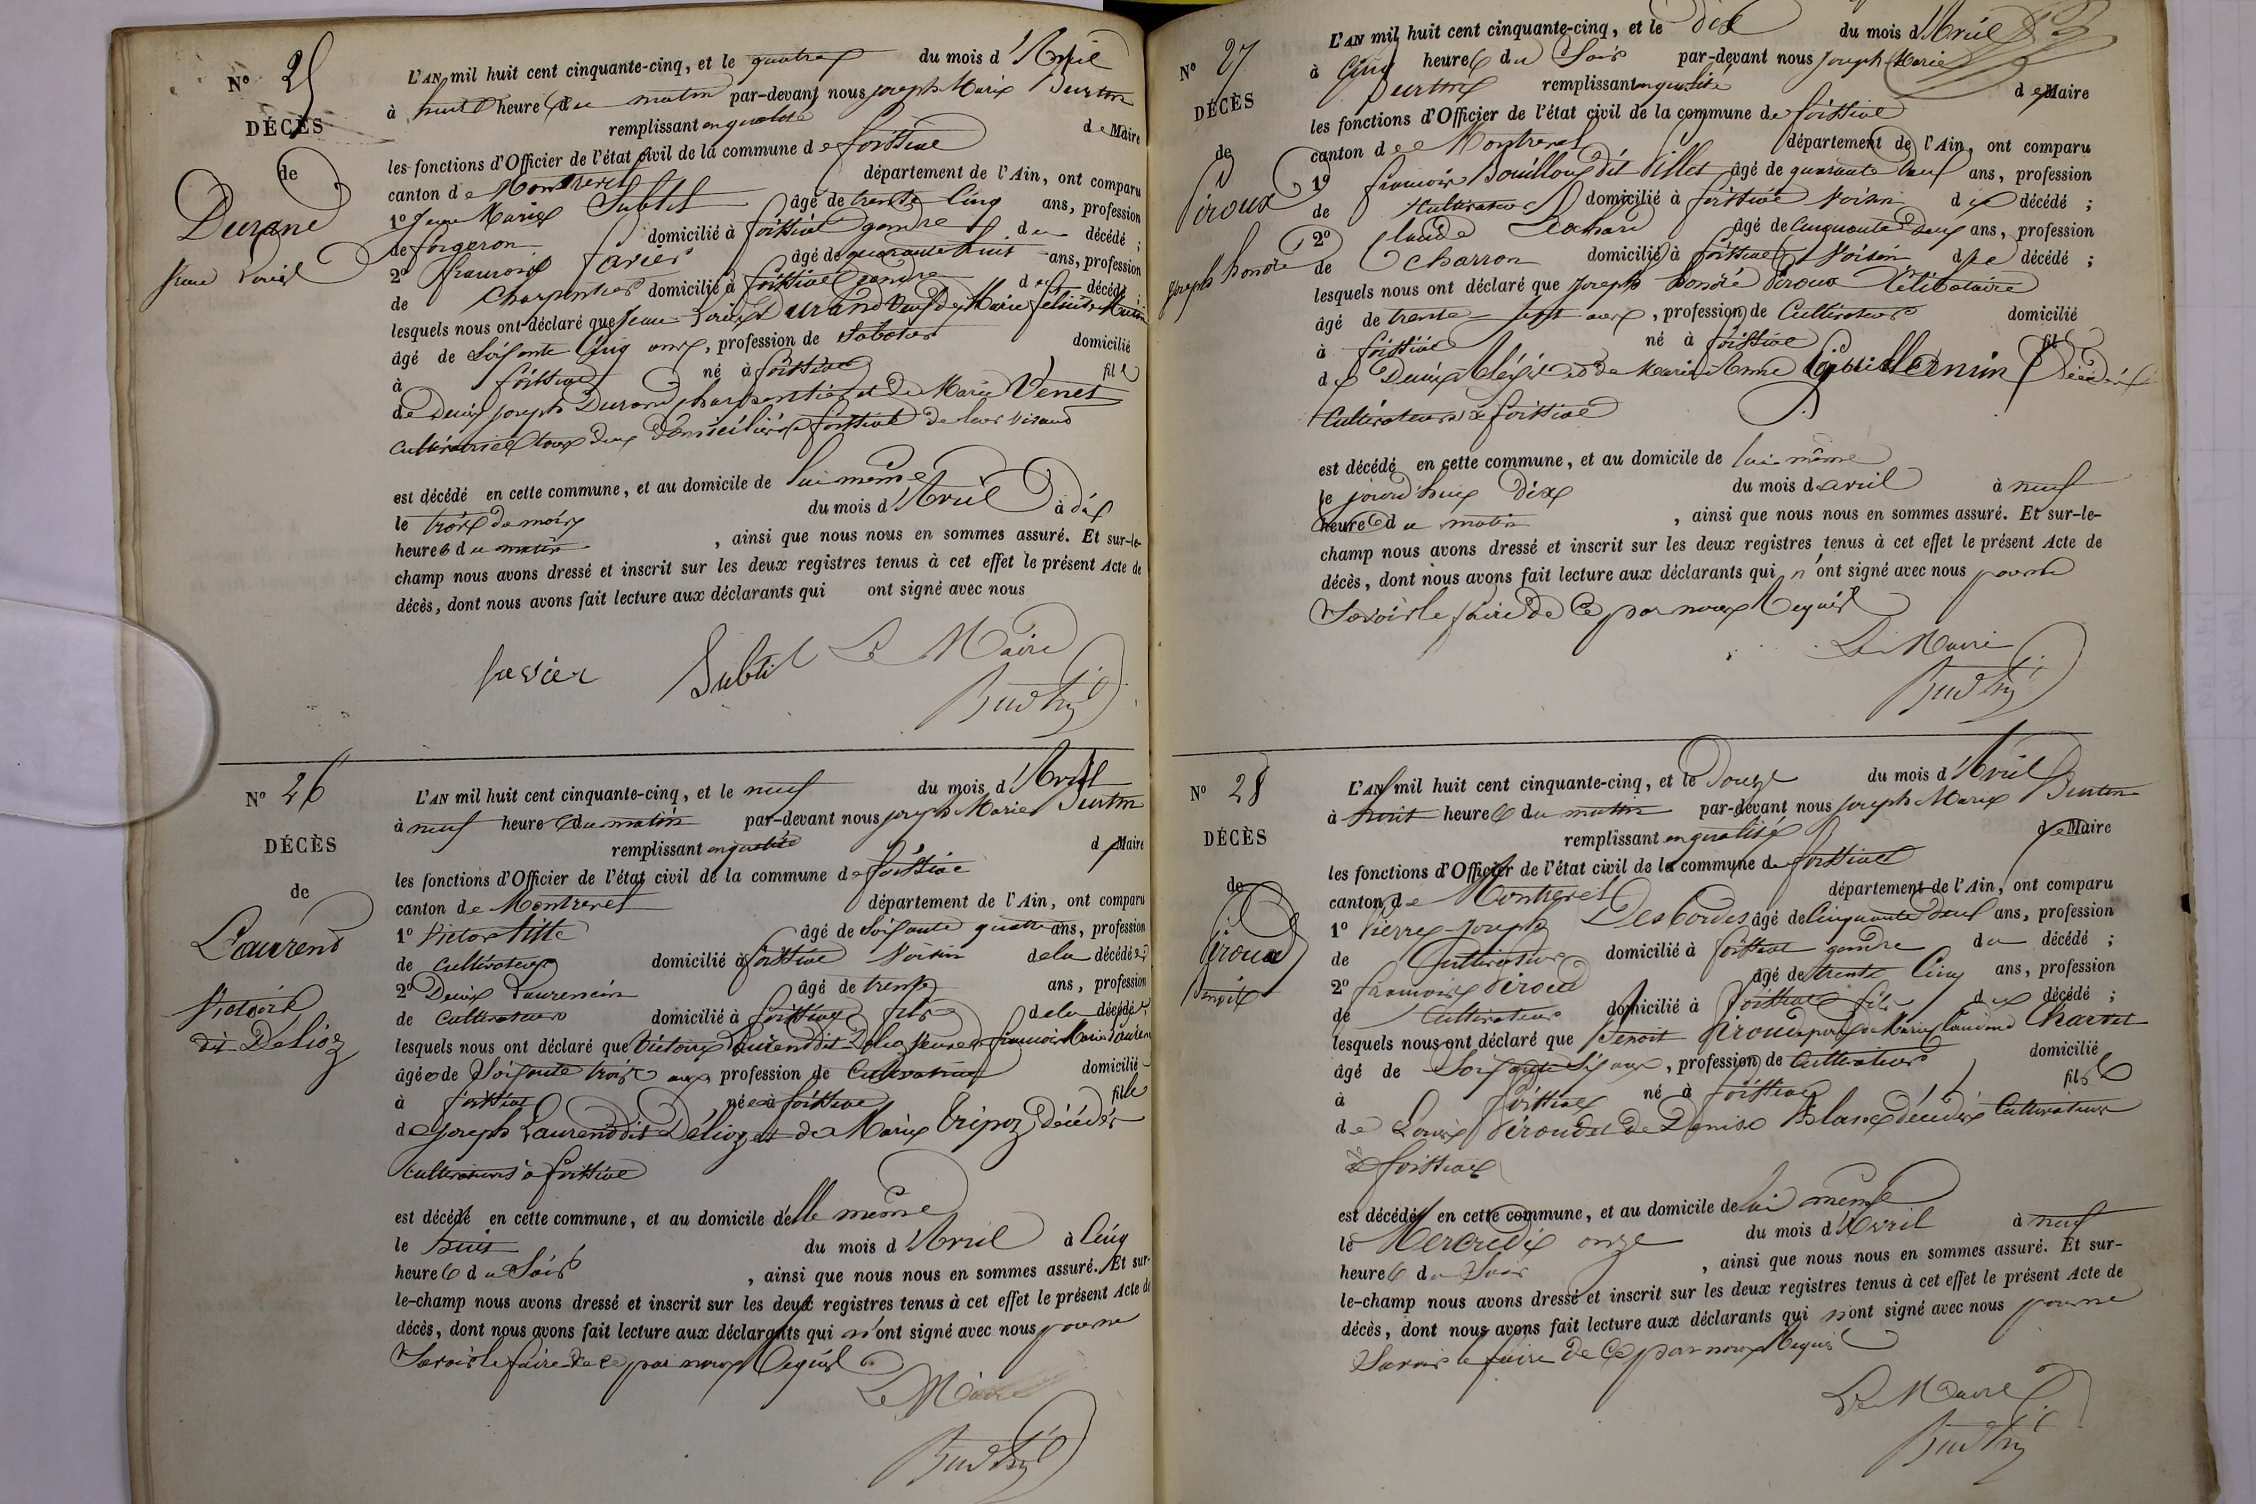 N° 25
DÉCÈS
de
Durand
Jean Louis
L'AN mil huit cent cinquante-cinq, et le quatre du mois d'Avril
à huit heures du matin par-devant nous joseph Marie
remplissant en qualité de Maire
les fonctions d'Officier de l'état civil de la commune de foissiat
canton de Montrevel département de l'Ain, ont comparu
1° Jean Marie Subtil âgé de trente Cinq ans, profession
de forgeron domicilié à foissiat gendre du décédé ;
2° françois favier âgé de quarante huit ans, profession
de Charpentier domicilié à foissiat gendre du décédé ;
lesquels nous ont déclaré que Jean Louis Durand veuf de Marie félicité
âgé de Soixante Cinq ans, profession de Sabotier domicilié
à foissiat né à foissiat fils
de Denis joseph Durand charpentier et de Marie Venet
cultivatrice tous deux domiciliés à foissiat de leur vivant
est décédé en cette commune, et au domicile de lui même
le trois de mois du mois d'Avril à dix
heures du matin , ainsi que nous nous en sommes assuré. Et sur-le-
champ nous avons dressé et inscrit sur les deux registres tenus à cet effet le présent Acte de
décès, dont nous avons fait lecture aux déclarants qui ont signé avec nous
favier Subtil Le Maire
N° 26
DÉCÈS
de
Laurend
Victoire
dit Délioz
L'AN mil huit cent cinquante-cinq, et le neuf du mois d'Avril
à neuf heures du matin par-devant nous joseph Marie
remplissant en qualité de Maire
les fonctions d'Officier de l'état civil de la commune de foissiat
canton de Montrevel département de l'Ain, ont comparu
1° Victor Pitte âgé de soixante quatre ans, profession
de cultivateur domicilié à foissiat Voisin de la décédée ;
2° Denis Laurencin âgé de trente ans, profession
de Cultivateur domicilié à foissiat fils de la décédée ;
lesquels nous ont déclaré que Victoire Laurend dit Délioz veuve de françois Marie
âgée de Soixante trois ans profession de Cultivatrice domicilié
à foissiat née à foissiat fille
de joseph Laurend dit Délioz et de Marie Tripoz décédés
cultivateurs à foissiat
est décédé en cette commune, et au domicile d'elle même
le huit du mois d'Avril à Cinq
heures du Soir , ainsi que nous nous en sommes assuré. Et sur-
le-champ nous avons dressé et inscrit sur les deux registres tenus à cet effet le présent Acte de
décès, dont nous avons fait lecture aux déclarants qui n'ont signé avec nous pour ne
Savoir le faire de ce par nous Requis
Le Maire
N° 27
DÉCÈS
de
Piroux
joseph honoré
L'AN mil huit cent cinquante-cinq, et le dix du mois d'Avril
à Cinq heures du Soir par-devant nous joseph Marie
remplissant en qualité de Maire
les fonctions d'Officier de l'état civil de la commune de foissiat
canton de Montrevel département de l'Ain, ont comparu
1° françois Bouilloux dit Villet âgé de quarante neuf ans, profession
de Cultivateur domicilié à foissiat Voisin du décédé ;
2° Claude Rochard âgé de Cinquante deux ans, profession
de charron domicilié à foissiat Voisin du décédé ;
lesquels nous ont déclaré que joseph honoré Piroux Célibataire
âgé de trente sept ans, profession de Cultivateur domicilié
à foissiat né à foissiat fils
de Denis Aléxis et de Marie Anne décédés
Cultivateurs à foissiat
est décédé en cette commune, et au domicile de lui même
le jourd'huy dix du mois d'avril à neuf
heures du matin , ainsi que nous nous en sommes assuré. Et sur-le-
champ nous avons dressé et inscrit sur les deux registres tenus à cet effet le présent Acte de
décès, dont nous avons fait lecture aux déclarants qui n'ont signé avec nous pour ne
Savoir le faire de Ce par nous Requis
Le Maire
N° 28
DÉCÈS
de
Piroud
Benoit
L'AN mil huit cent cinquante-cinq, et le Douze du mois d'Avril
à huit heures du matin par-devant nous joseph Marie
remplissant en qualité de Maire
les fonctions d'Officier de l'état civil de la commune de foissiat
canton de Montrevel département de l'Ain, ont comparu
1° Pierre joseph Desbordes âgé de Cinquante deux ans, profession
de Cultivateur domicilié à foissiat gendre du décédé ;
2° françois Piroud âgé de trente Cinq ans, profession
de Cultivateur domicilié à foissiat fils du décédé ;
lesquels nous ont déclaré que Benoit Piroud époux de Marie Claudine Charvet
âgé de Soixante Six ans, profession de Cultivateur domicilié
à foissiat né à foissiat fils
de Louis Piroud et de Denise Blanc décédés Cultivateurs
à foissiat
est décédé en cette commune, et au domicile de lui même
le Mercredi onze du mois d'Avril à neuf
heures du Soir , ainsi que nous nous en sommes assuré. Et sur-
le-champ nous avons dressé et inscrit sur les deux registres tenus à cet effet le présent Acte de
décès, dont nous avons fait lecture aux déclarants qui n'ont signé avec nous pour ne
Savoir le faire de Ce par nous Requis
Le Maire